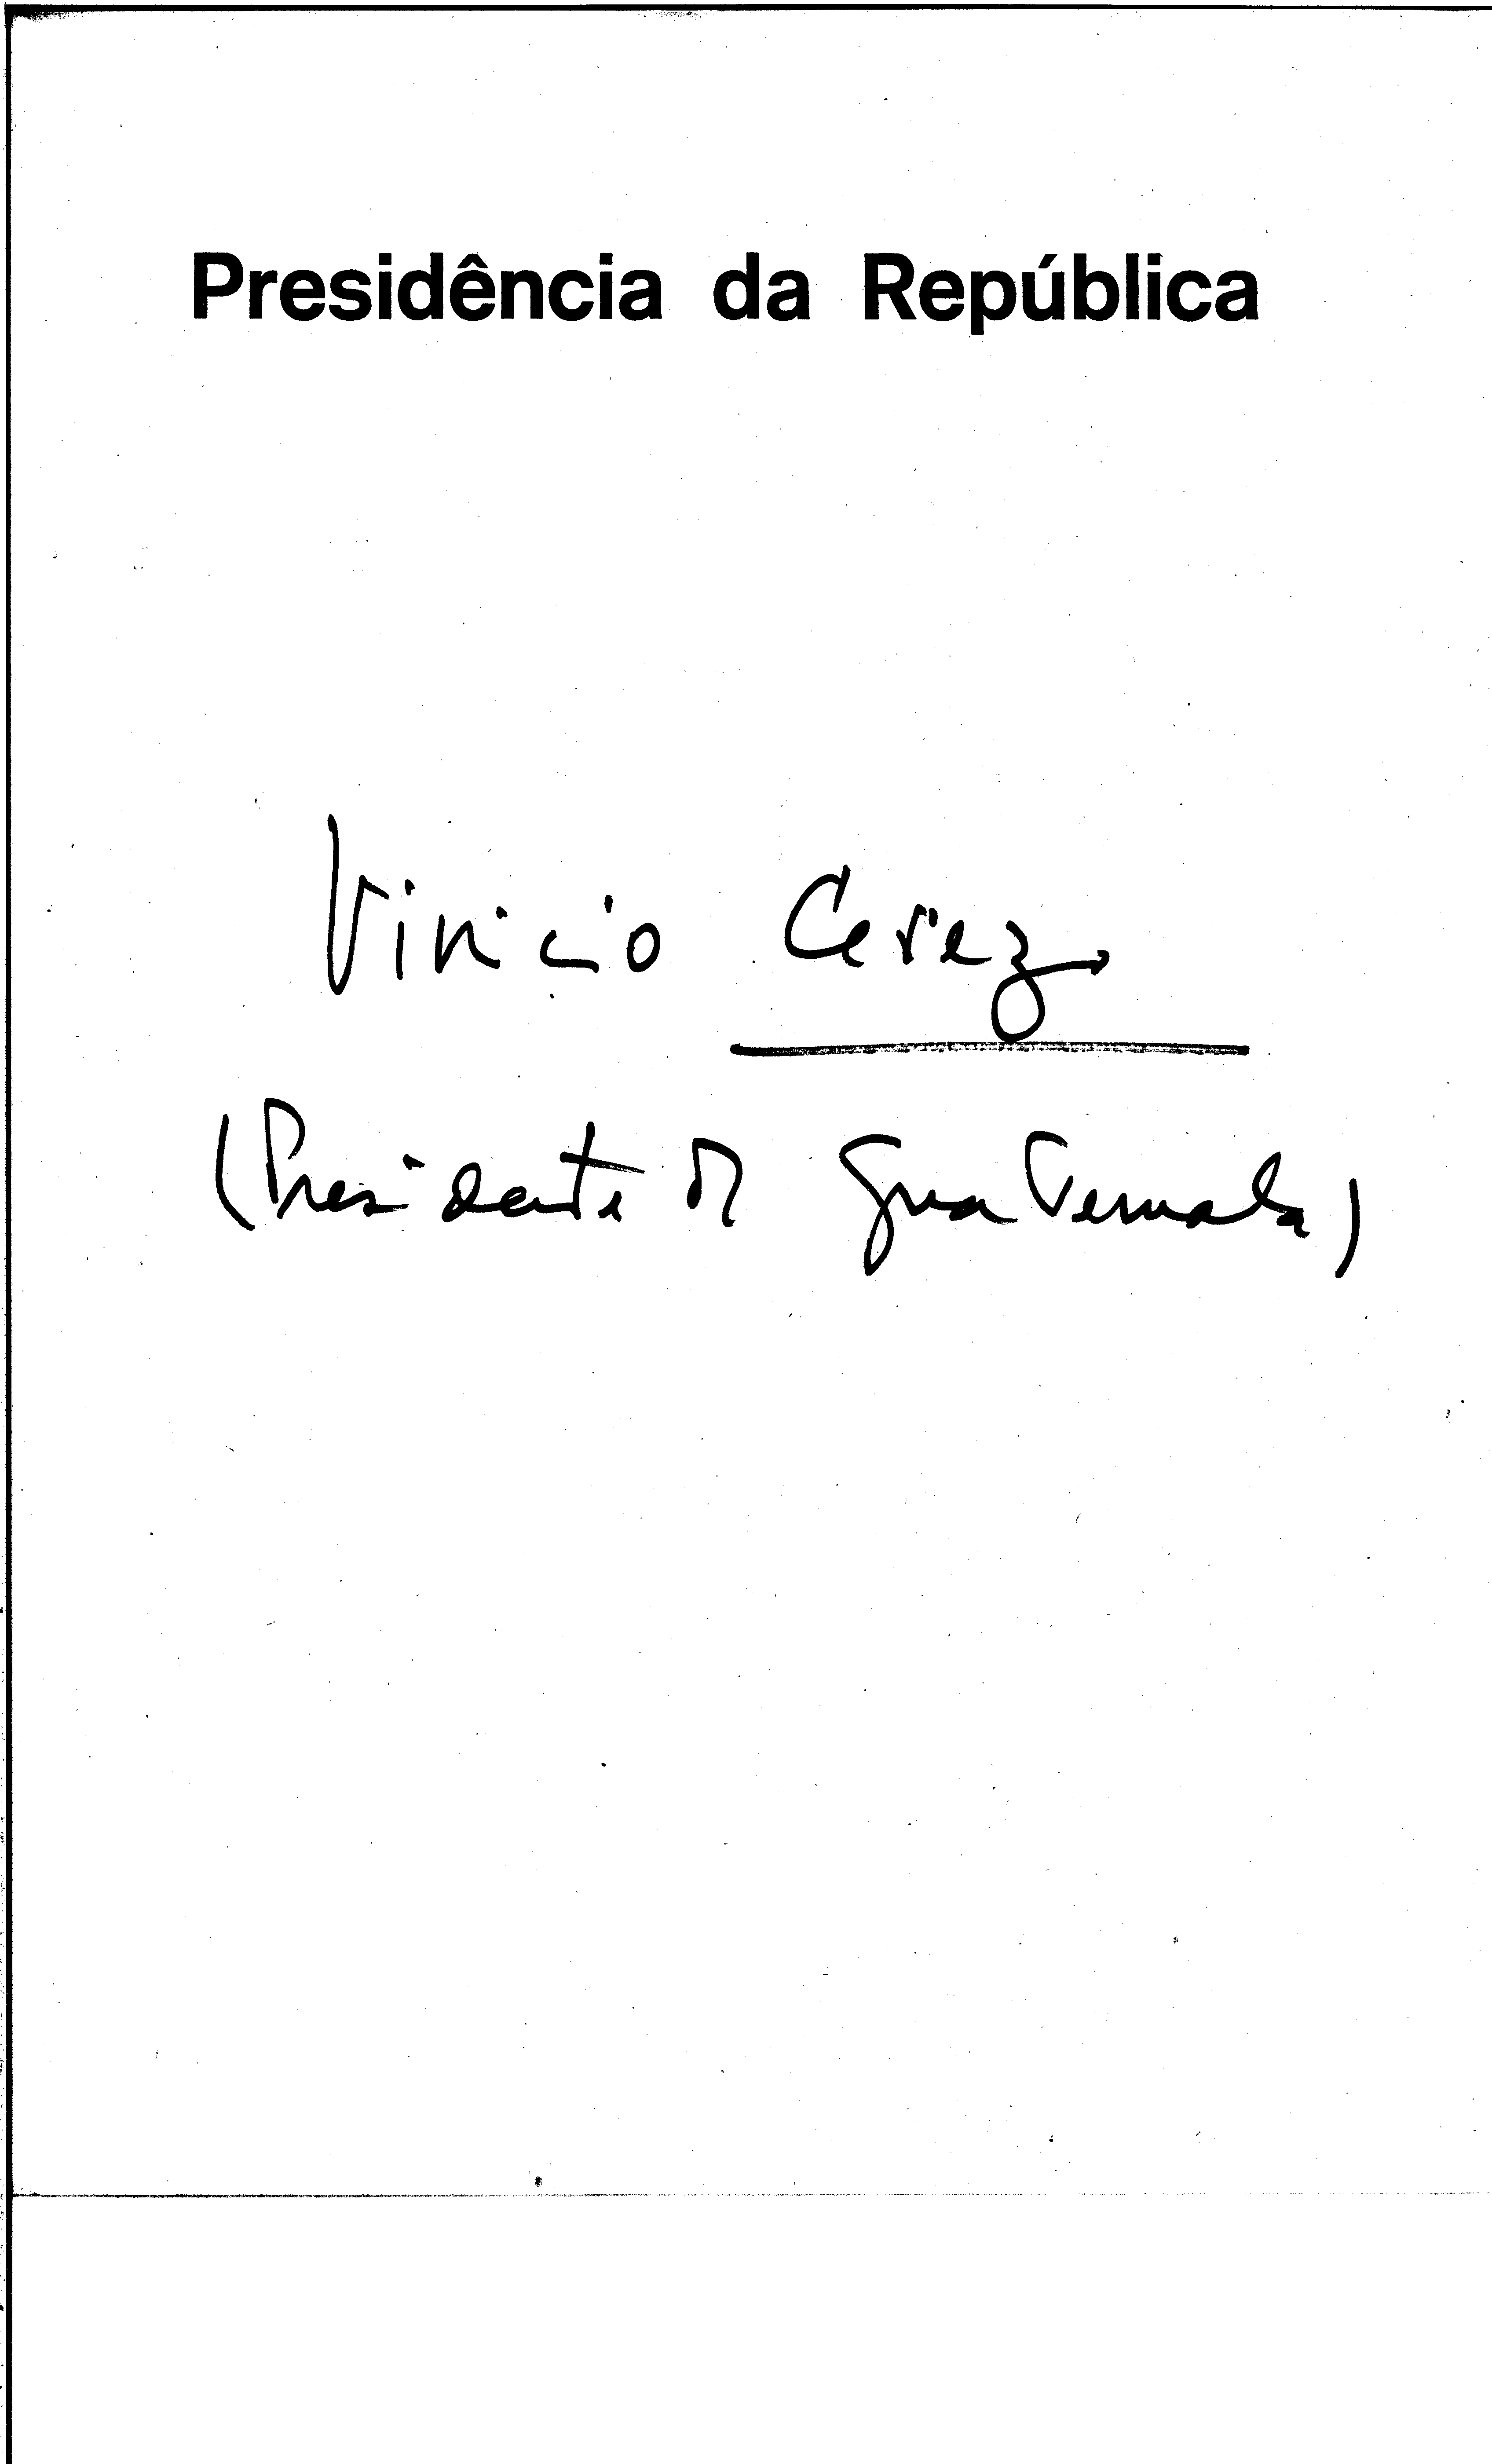 Presidência da República
Vinicio Cerezo
(Presidente da Guatemala)